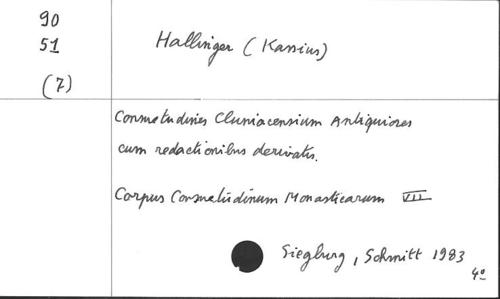 90
51
(7)
Hallinger (Kassius)
Consuetudines Cluniacensium Antiquiores
cum redactionibus derivatis.
Corpus Consuetudinum Monasticarum VII
Siegburg, Schmitt 1983
4º